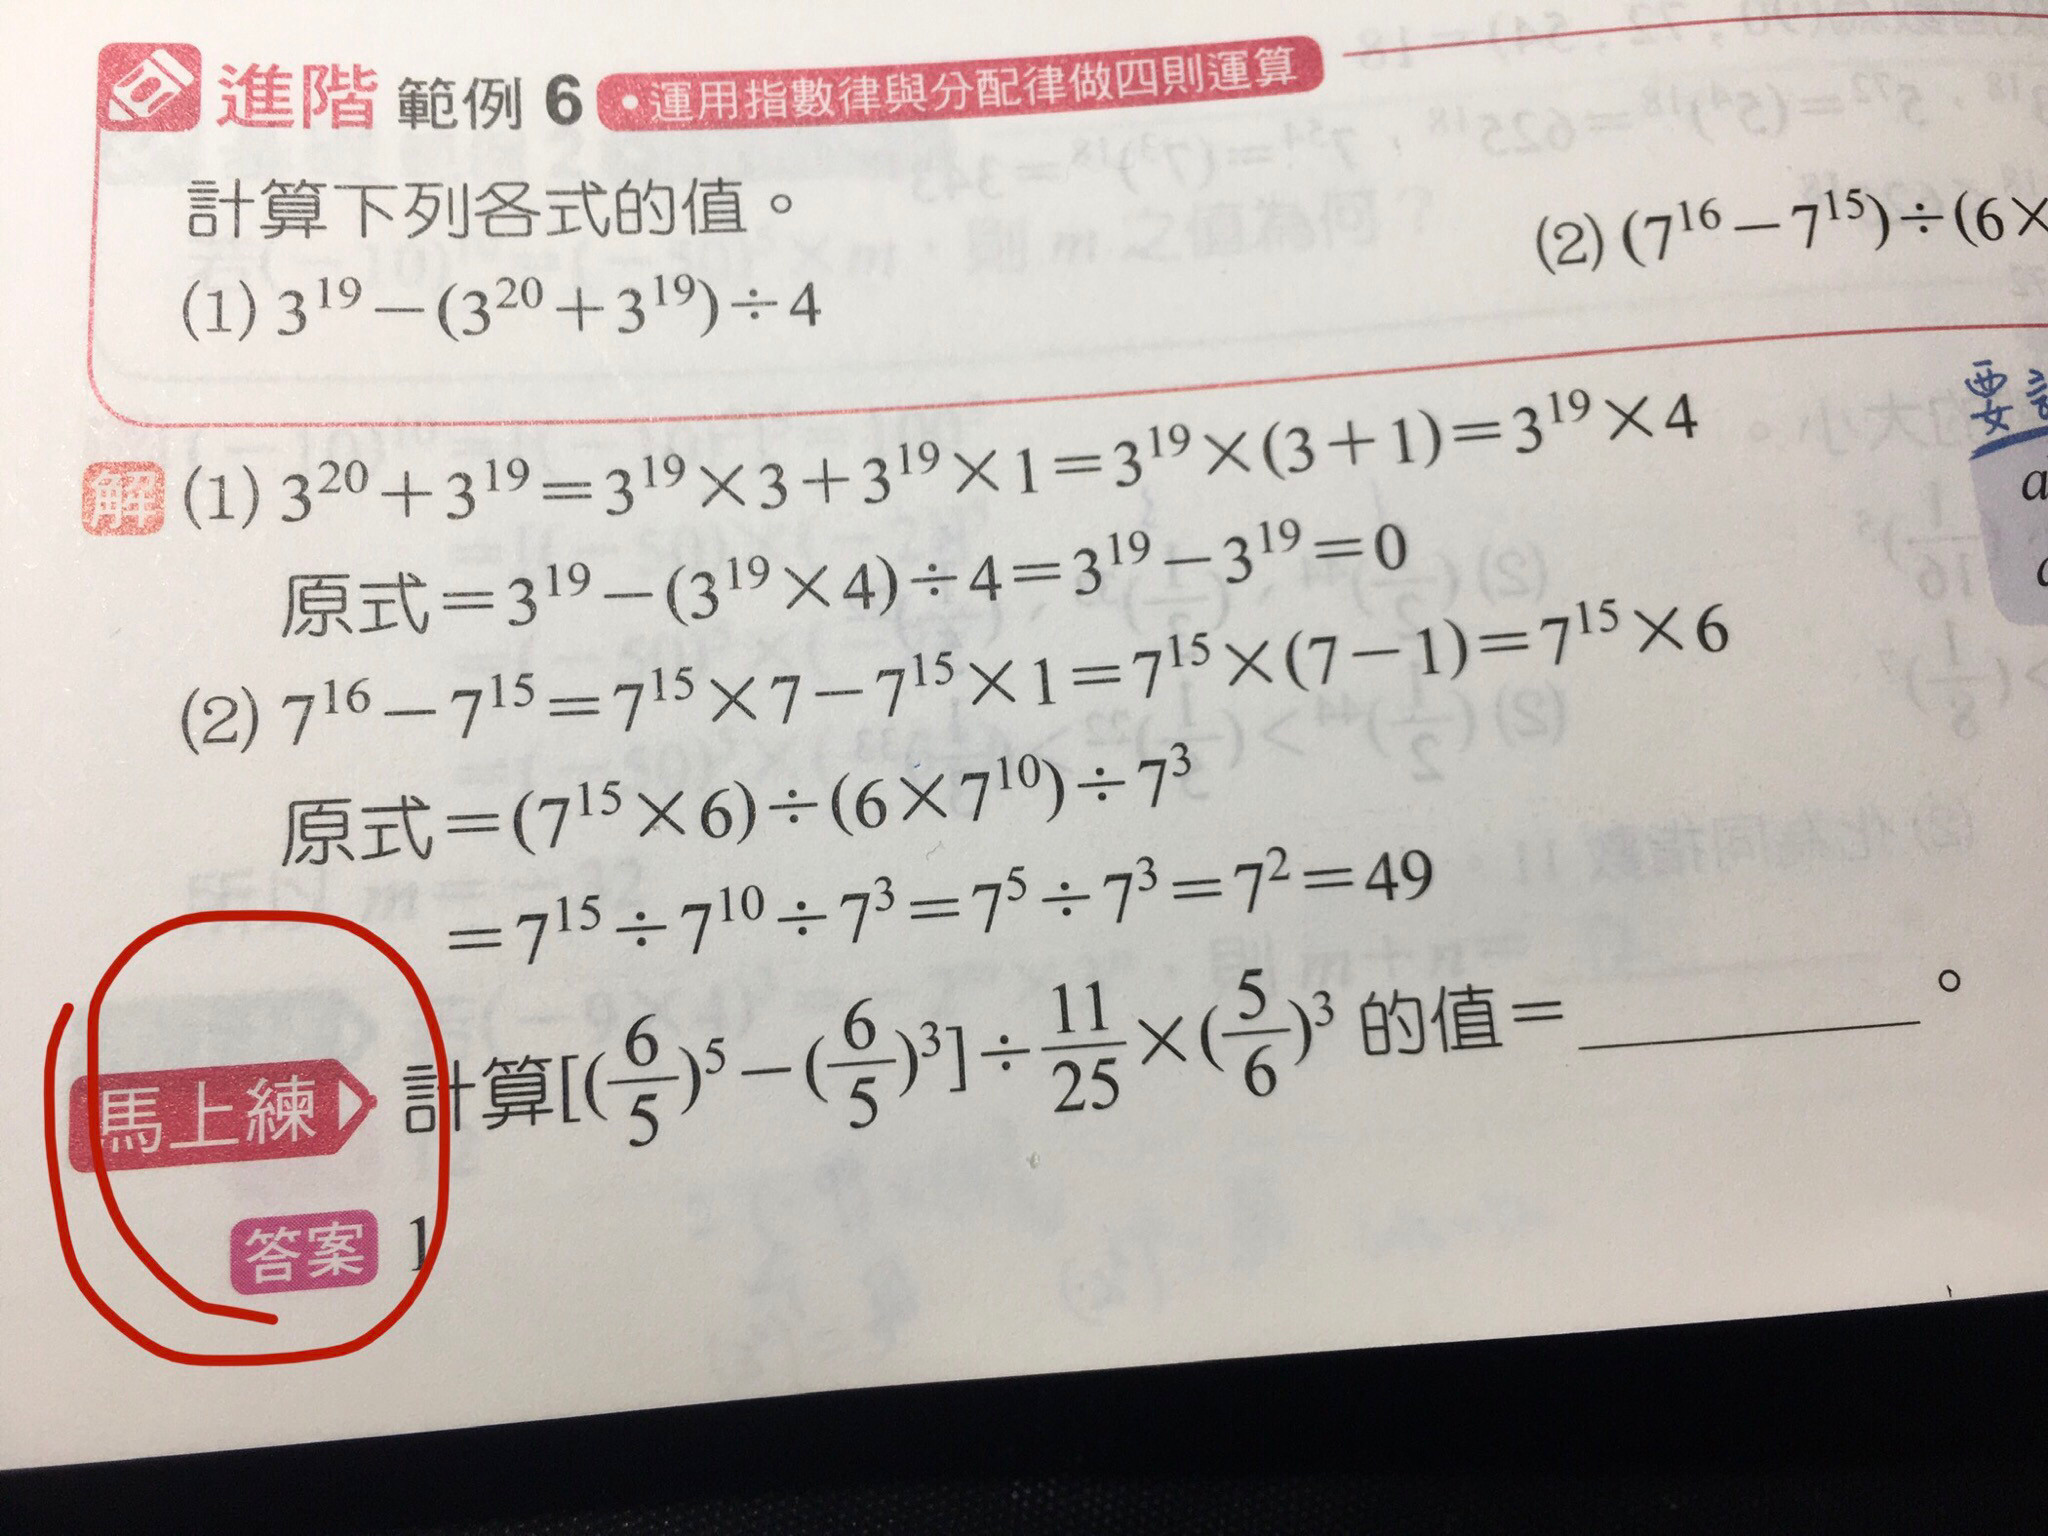 進階 範例 6 •運用指數律與分配律做四則運算
計算下列各式的值。
(1) 3¹⁹－(3²⁰＋3¹⁹)÷4
(2) (7¹⁶－7¹⁵)÷(6×
要
解 (1) 3²⁰＋3¹⁹＝3¹⁹×3＋3¹⁹×1＝3¹⁹×(3＋1)＝3¹⁹×4
原式＝3¹⁹－(3¹⁹×4)÷4＝3¹⁹－3¹⁹＝0
(2) 7¹⁶－7¹⁵＝7¹⁵×7－7¹⁵×1＝7¹⁵×(7－1)＝7¹⁵×6
原式＝(7¹⁵×6)÷(6×7¹⁰)÷7³
＝7¹⁵÷7¹⁰÷7³＝7⁵÷7³＝7²＝49
馬上練 計算[(6/5)⁵－(6/5)³]÷11/25×(5/6)³ 的值＝________。
答案 1